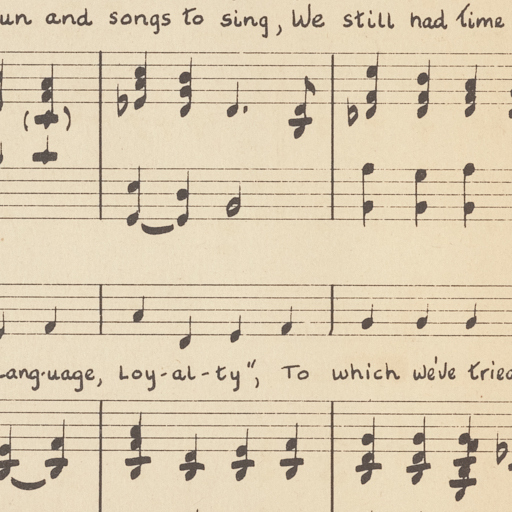 un and songs to sing, We still had time
Lang-uage, Loy-al-ty", To which we've tried